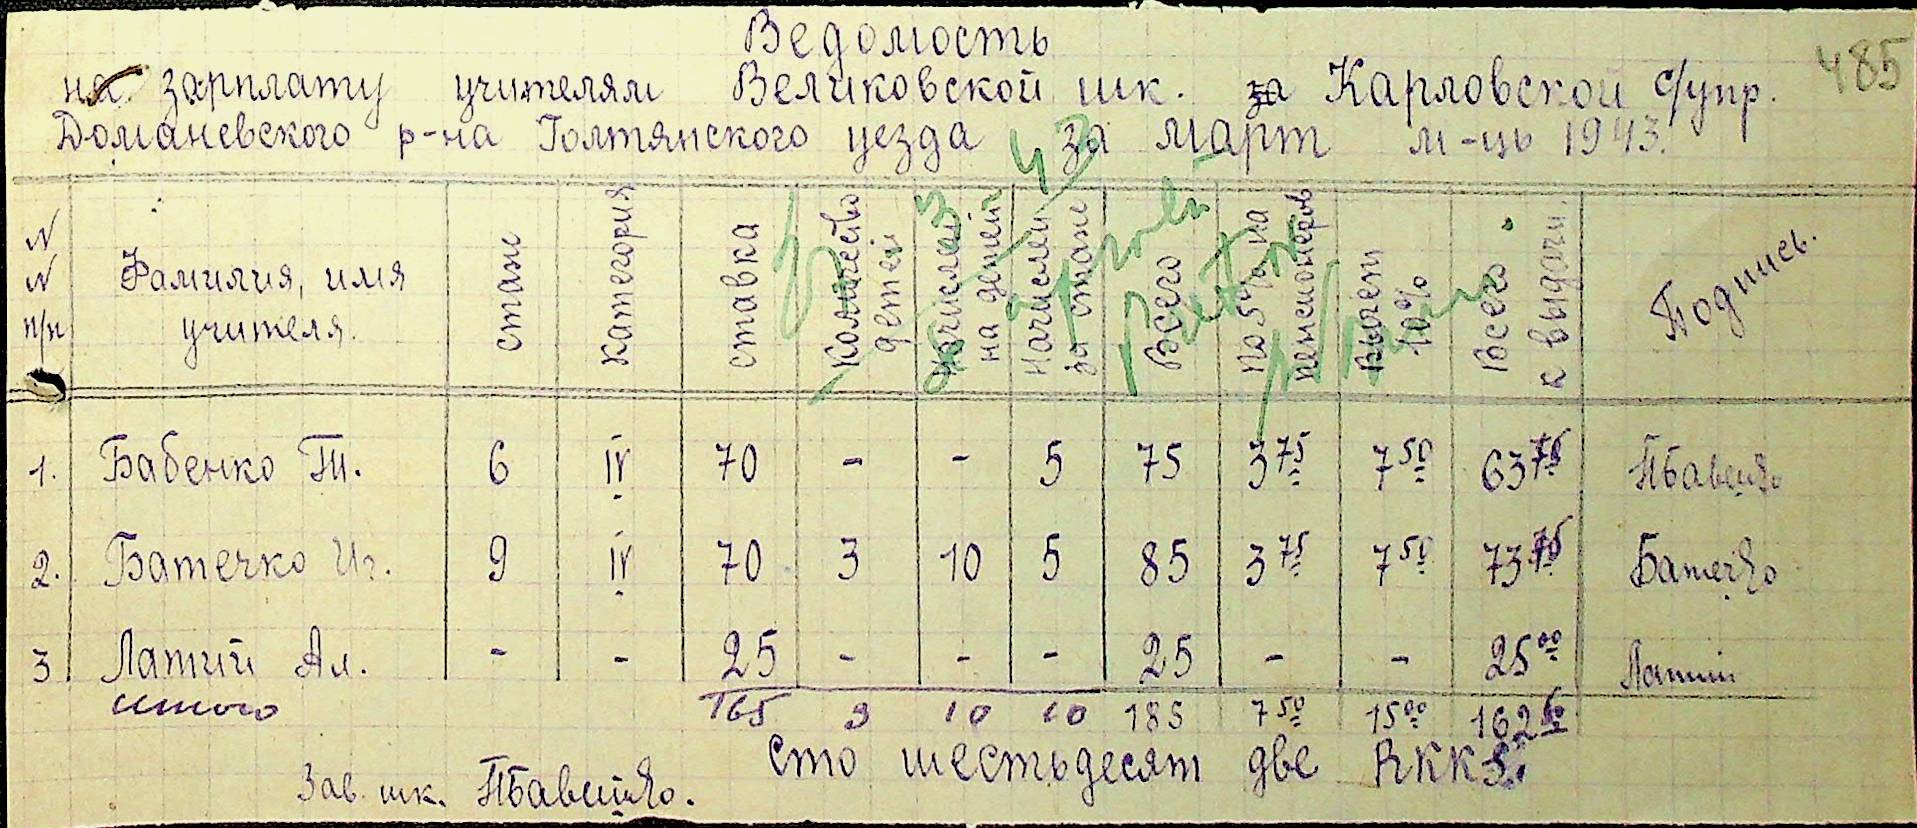 485
Ведомость
на зарплату учителям Великовской шк. за Карловской с/упр.
Доманевского р-на Голтянского уезда за март м-ць 1943.
N N п/п | Фамилия, имя учителя. | стаж | категория | ставка | количество детей | начислен на детей | начислен за стаж | Всего | по 5% на пенсионеров | вычет 10% | Всего к выдачи. | Подпись.
1. Бабенко Т. 6 IV 70 - - 5 75 3 75 7 50 63 75
2. Батечко Иг. 9 IV 70 3 10 5 85 3 75 7 50 73 75 Батечко
3 Латий Ал. - - 25 - - - 25 - - 25 00 Латий
итого 165 3 10 10 185 7 50 15 00 162 50
сто шестьдесят две RKKS.
Зав. шк.